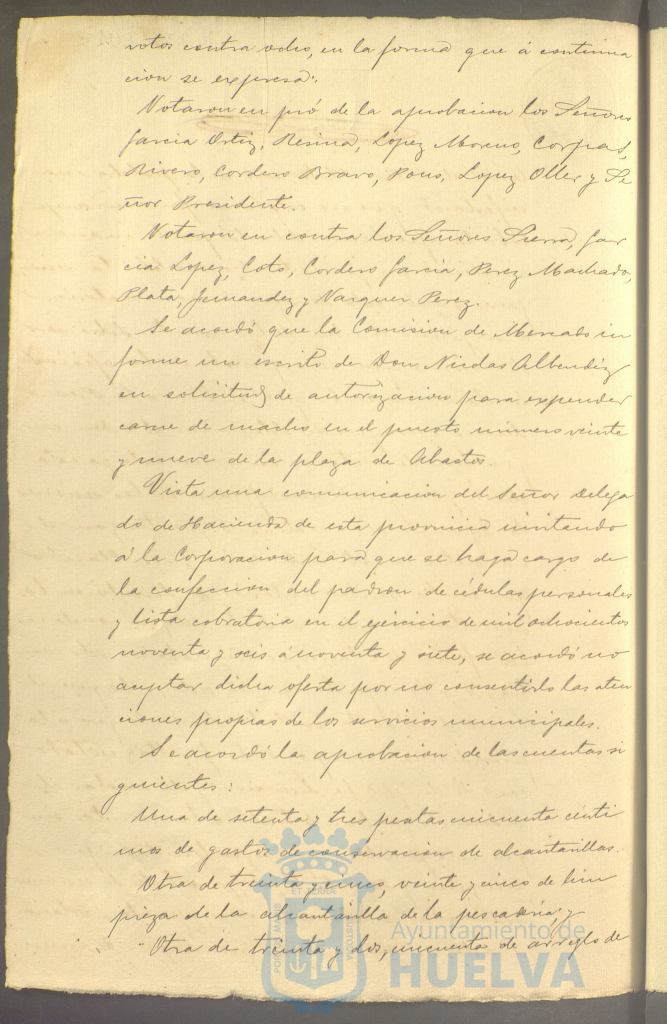 votos contra ocho, en la forma que á continua
cion se expresa:
Votaron en pró de la aprobacion los Señores
Garcia Ortiz, Resina, Lopez Moreno, Corpas,
Rivero, Cordero Bravo, Pons, Lopez Oller y Se
ñor Presidente.
Votaron en contra los Señores Sierra, Gar
cia Lopez, Coto, Cordero Garcia, Perez Machado,
Plata, Jernandez y Vazquez Perez.
Se acordó que la Comision de Mercado in
forme un escrito de Don Nicolas Albendiz
en solicitud de autorizacion para expender
carne de macho en el puesto número veinte
y nueve de la plaza de Abastos.
Vista una comunicacion del Señor Delega
do de Hacienda de esta provincia invitando
á la Corporacion para que se haga cargo de
la confeccion del padron de cédulas personales
y lista cobratoria en el ejercicio de mil ochocientos
noventa y seis á noventa y siete, se acordó no
aceptar dicha oferta por no consentirlo las aten
ciones propias de los servicios municipales.
Se acordó la aprobacion de las cuentas si
guientes:
Una de setenta y tres pesetas cincuenta cénti
mos de gastos de conservacion de alcantarillas.
Otra de treinta y cinco, veinte y cinco de lim
pieza de la alcantarilla de la pescaderia; y
Otra de treinta y dos, cincuenta de arreglo de
Ayuntamiento de
HUELVA